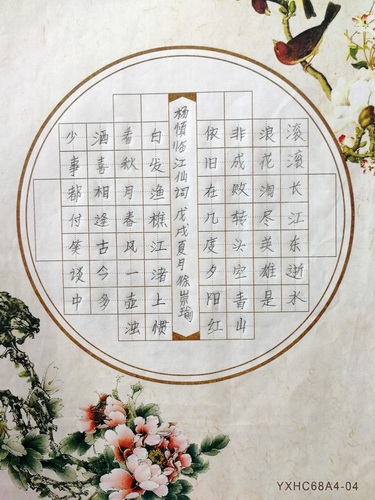 滚滚长江东逝水
浪花淘尽英雄是
非成败转头空青山
依旧在几度夕阳红
杨慎临江仙词戊戌夏月徐崇
白发渔樵江渚上惯
看秋月春风一壶浊
酒喜相逢古今多
少事都付笑谈中
YXHC68A4-04